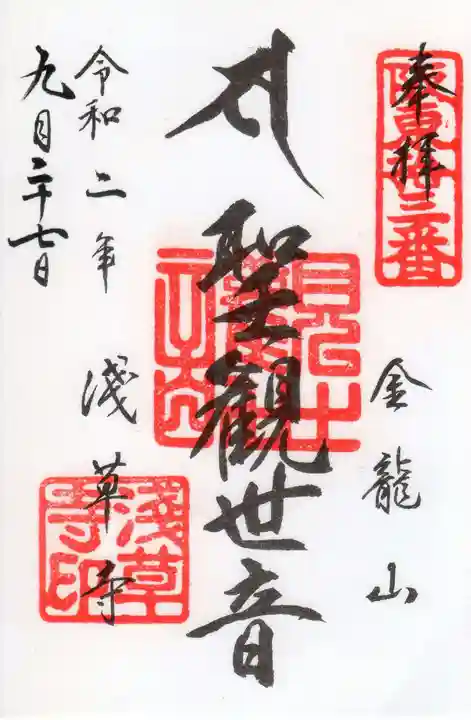 奉拝
坂東十三番
金龍山
聖観世音
令和二年
九月二十七日
浅草寺
浅草寺印